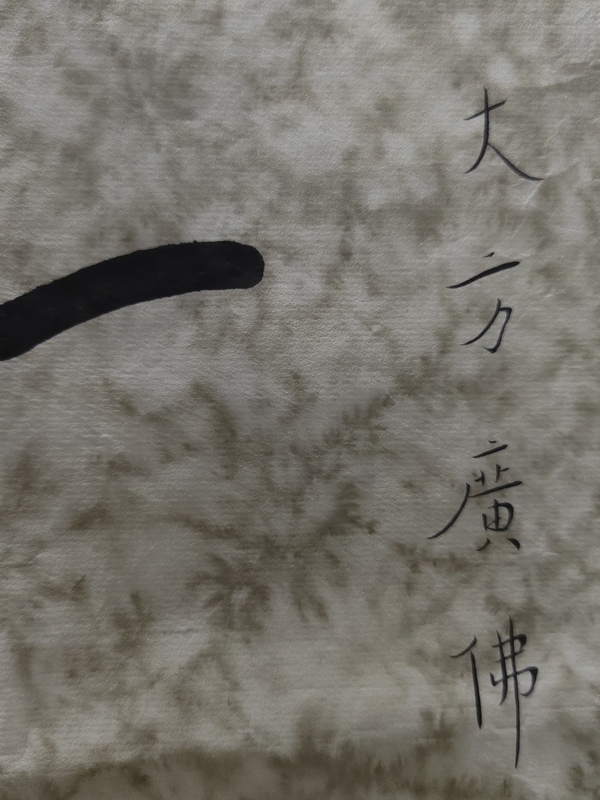 大方廣佛